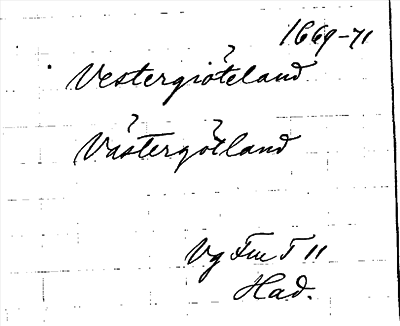 1669-71
Vestergiöteland
Västergötland
Vg Fm T 11
Had.